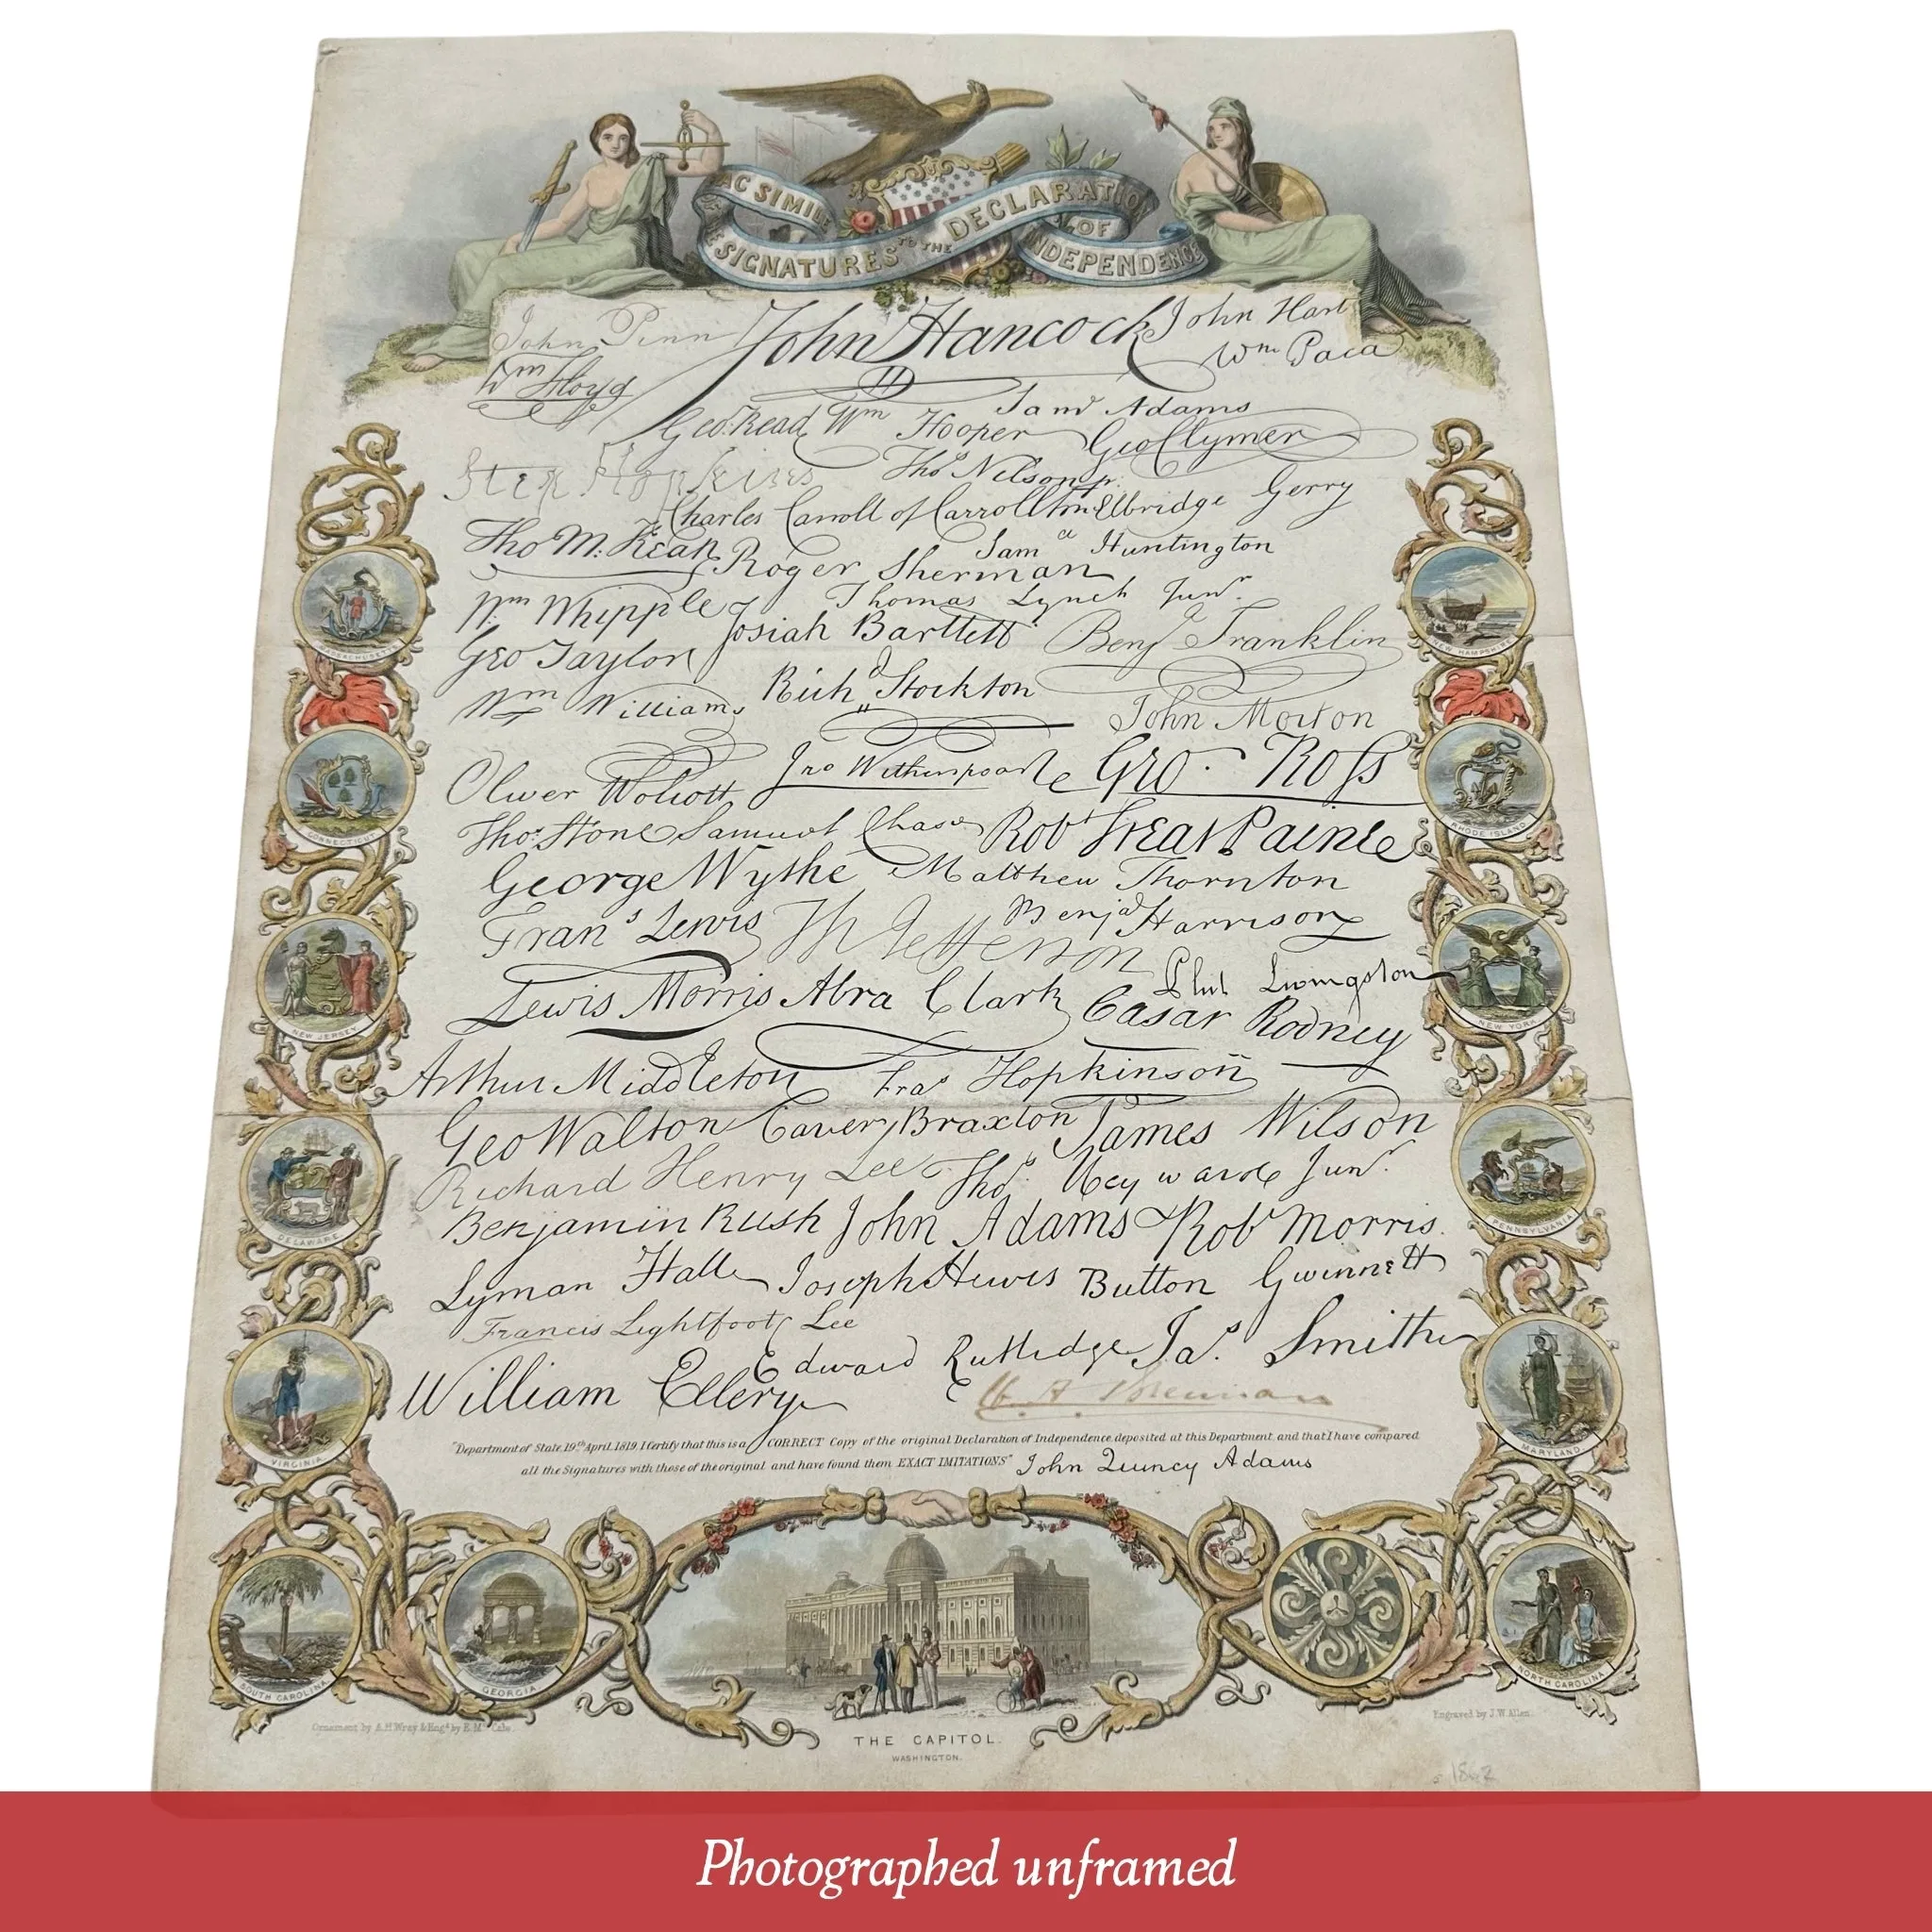 FAC SIMILE
OF THE SIGNATURES TO THE DECLARATION OF INDEPENDENCE
John Penn John Hancock John Hart
Wm Floyd Wm Paca
Saml Adams
Geo. Read Wm Hooper Geo Clymer
Step Hopkins Thos Nelson jr.
Charles Carroll of Carrollton Elbridge Gerry
Tho M: Kean Saml Huntington
Roger Sherman
Wm Whipple Thomas Lynch Junr.
Josiah Bartlett Benj Franklin
Geo Taylor
Richd Stockton
Wm Williams John Morton
Oliver Wolcott Jno Witherspoon Geo. Ross
Thos. Stone Samuel Chase Robt Treat Paine
George Wythe Matthew Thornton
Frans Lewis Th Jefferson Benja Harrison
Lewis Morris Abra Clark Phil Livingston
Cæsar Rodney
Arthur Middleton Fras Hopkinson
Geo Walton Carter Braxton James Wilson
Richard Henry Lee Thos. Heyward Junr.
Benjamin Rush John Adams Robt Morris
Lyman Hall Joseph Hewes Button Gwinnett
Francis Lightfoot Lee
Edward Rutledge Jas. Smith
William Ellery
"Department of State, 19th April, 1819. I Certify that this is a CORRECT Copy of the original Declaration of Independence, deposited at this Department, and that I have compared
all the Signatures with those of the original and have found them EXACT IMITATIONS" John Quincy Adams
MASSACHUSETTS
NEW HAMPSHIRE
CONNECTICUT
RHODE ISLAND
NEW JERSEY
NEW YORK
DELAWARE
PENNSYLVANIA
VIRGINIA
MARYLAND
SOUTH CAROLINA
GEORGIA
NORTH CAROLINA
Ornament by A.H. Wray & Engd by E. Mc Cabe.
Engraved by J.W. Allen.
THE CAPITOL.
WASHINGTON.
Photographed unframed